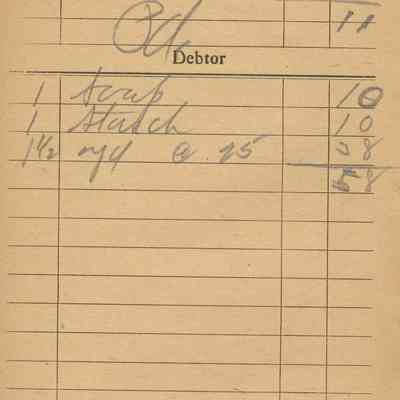 11
Pd
Debtor
1 Soap 10
1 Starch 10
1 1/2 yd @ 25 38
58